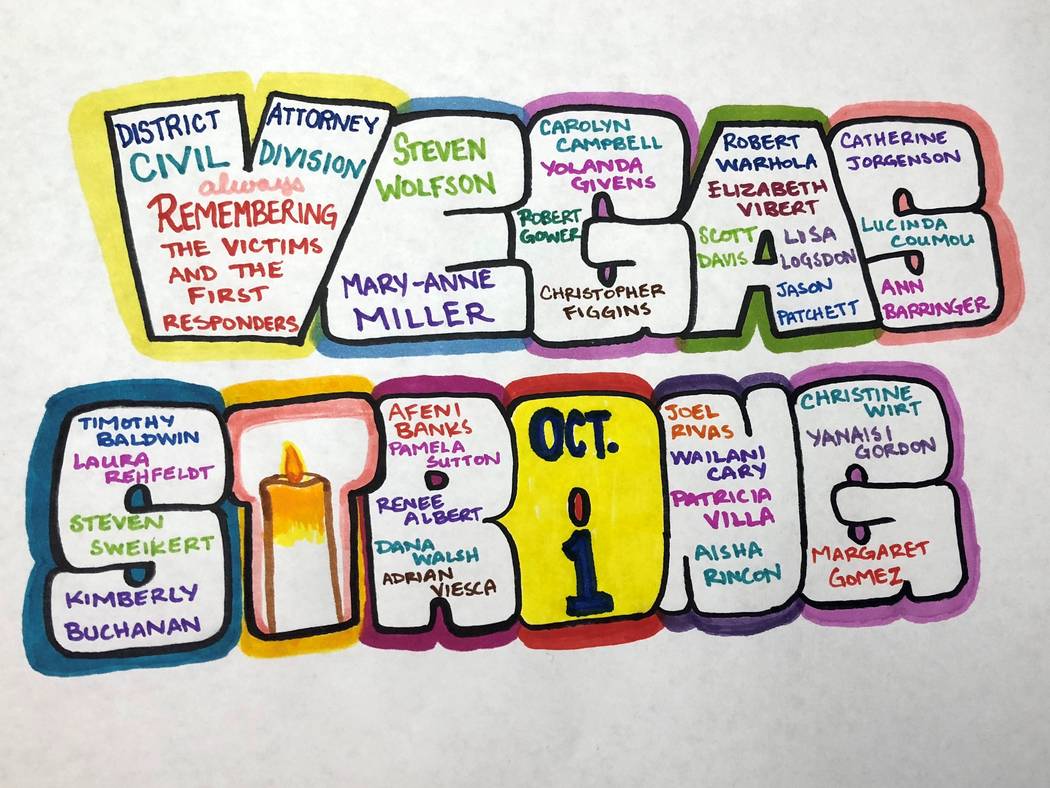 VEGAS
DISTRICT ATTORNEY
CIVIL DIVISION
always
REMEMBERING
THE VICTIMS
AND THE
FIRST
RESPONDERS
STEVEN
WOLFSON
MARY-ANNE
MILLER
CAROLYN
CAMPBELL
YOLANDA
GIVENS
ROBERT
GOWER
CHRISTOPHER
FIGGINS
ROBERT
WARHOLA
ELIZABETH
VIBERT
SCOTT
DAVIS
LISA
LOGSDON
JASON
PATCHETT
CATHERINE
JORGENSON
LUCINDA
COUMOU
ANN
BARRINGER
STRONG
TIMOTHY
BALDWIN
LAURA
REHFELDT
STEVEN
SWEIKERT
KIMBERLY
BUCHANAN
AFENI
BANKS
PAMELA
SUTTON
RENEE
ALBERT
DANA
WALSH
ADRIAN
VIESCA
OCT.
1
JOEL
RIVAS
WAILANI
CARY
PATRICIA
VILLA
AISHA
RINCON
CHRISTINE
WIRT
YANAISI
GORDON
MARGARET
GOMEZ